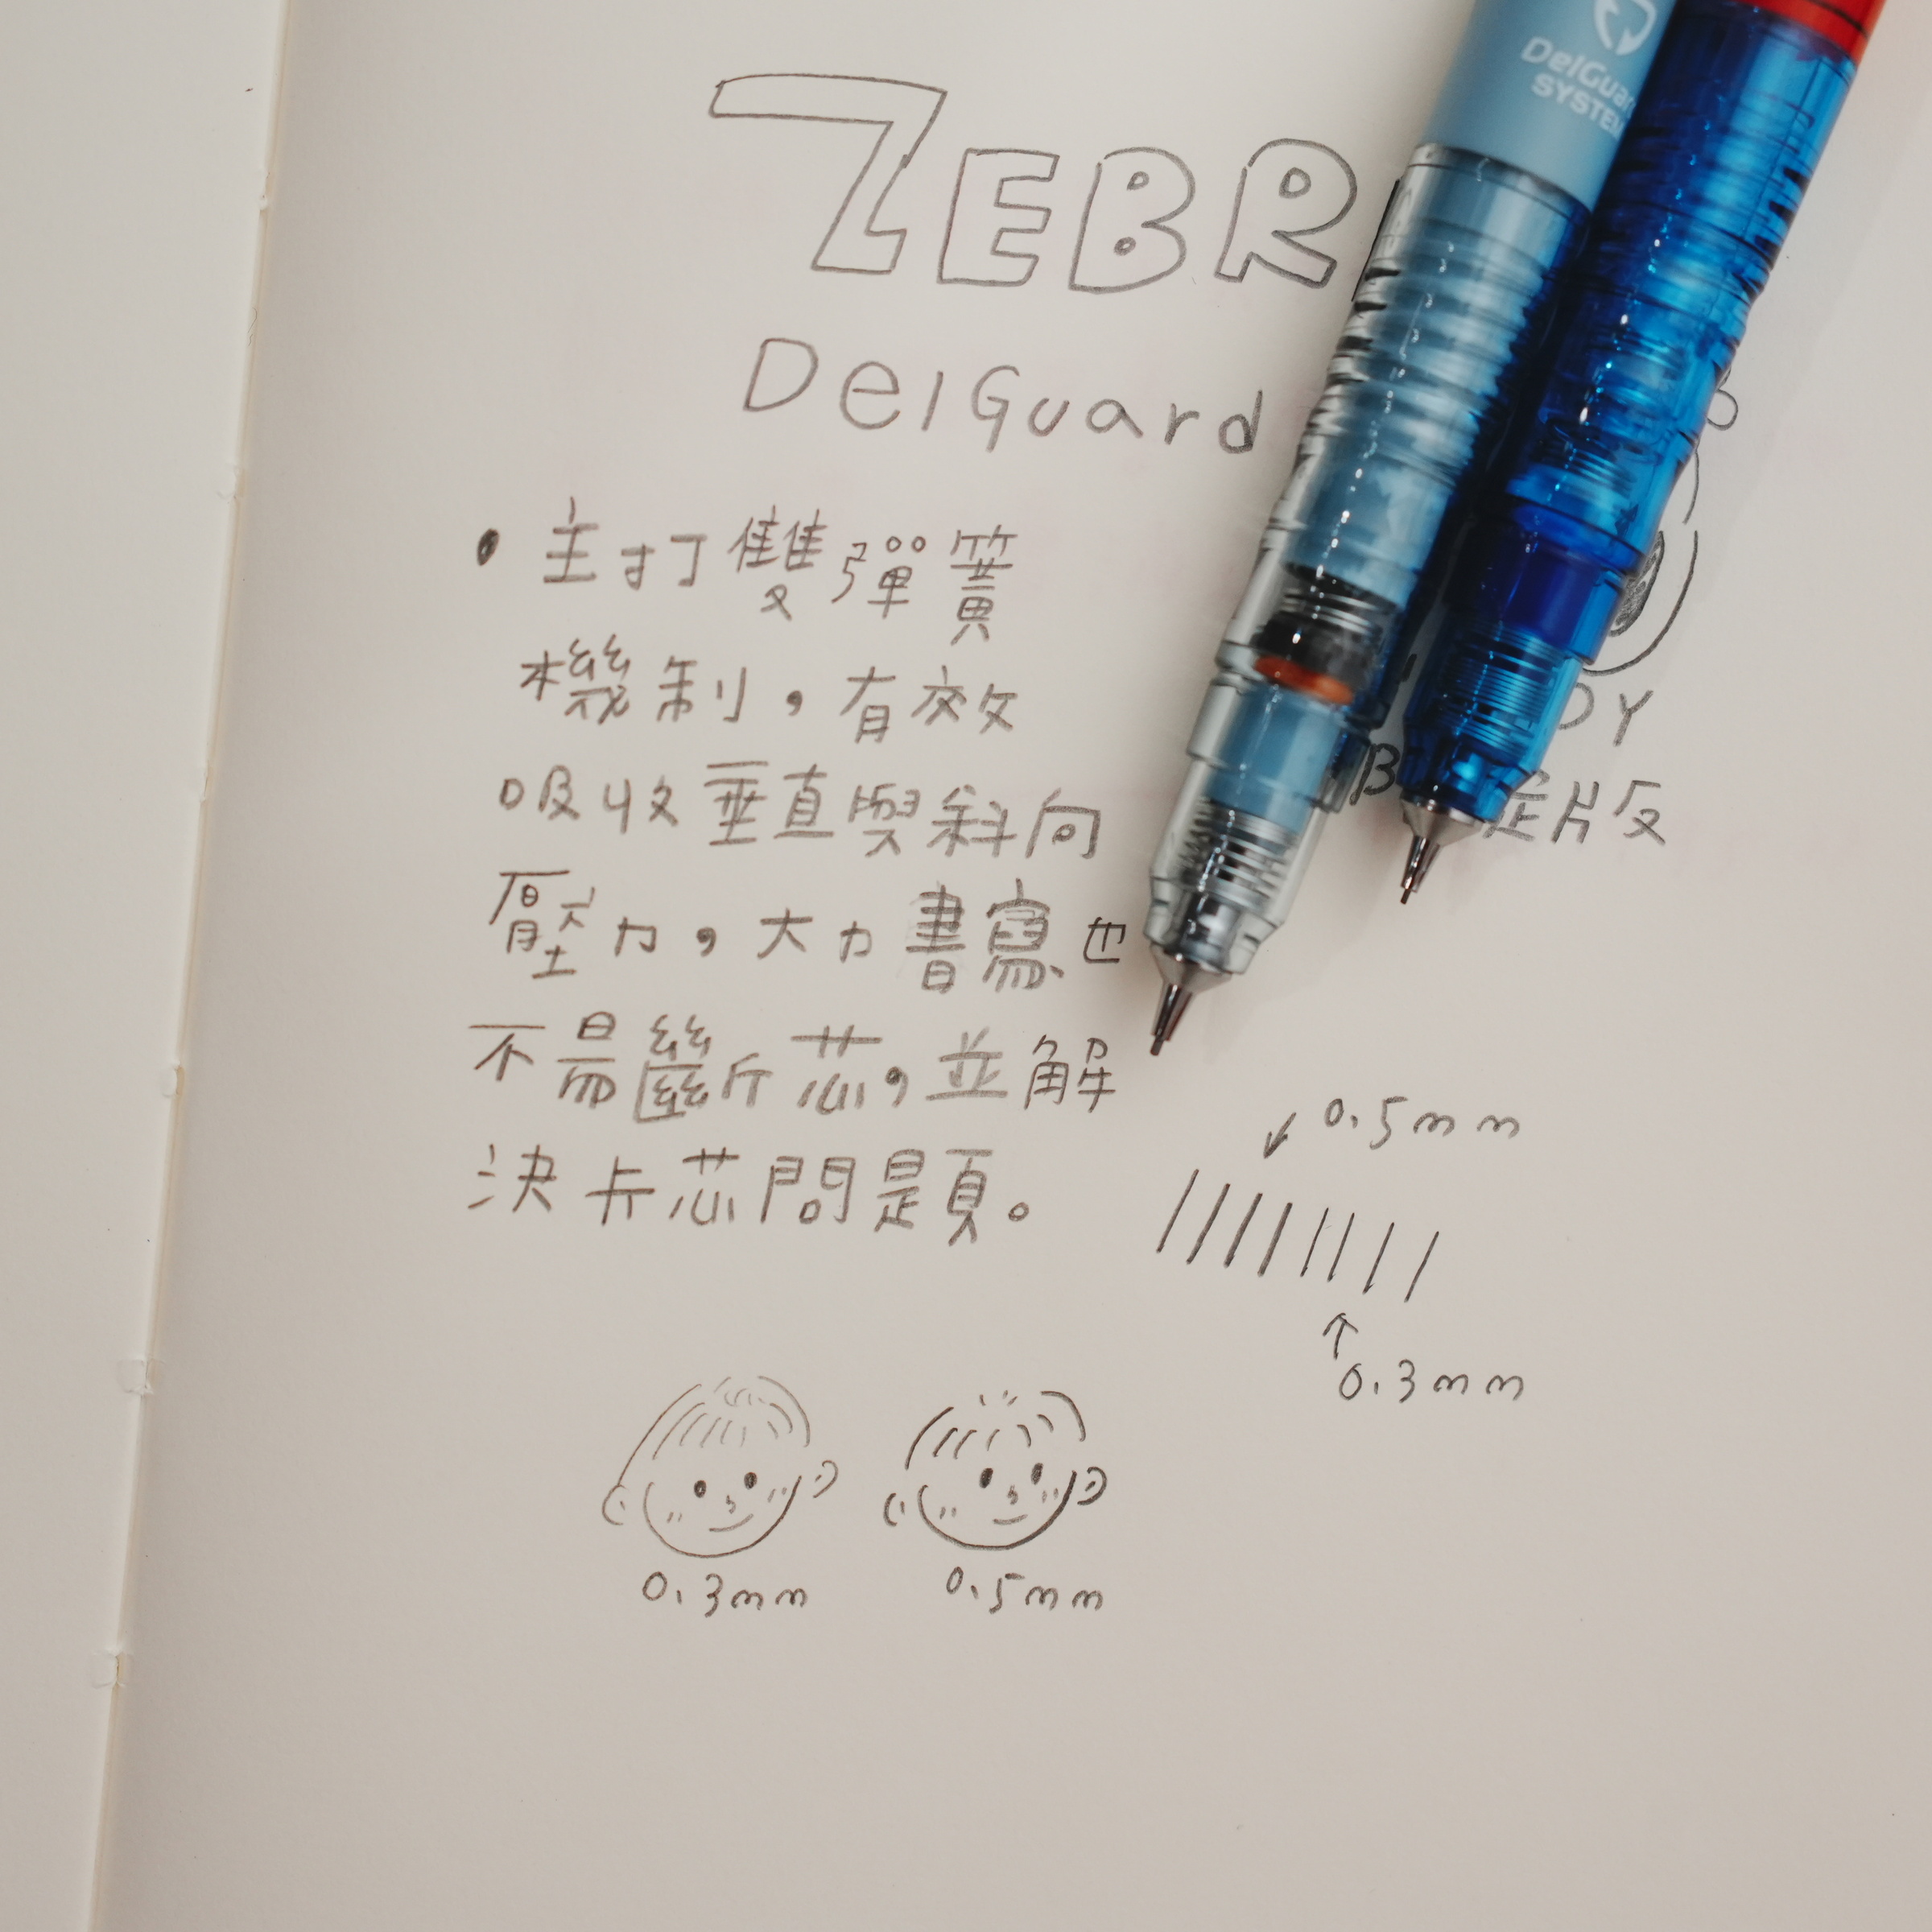 ZEBR
DelGuard
DelGuar
SYSTEM
• 主打雙彈簧
機制，有效
吸收垂直與斜向
壓力，大力書寫也
不易斷芯，並解
決卡芯問題。
DY
B
定片反
0.5mm
0.3mm
0.3mm
0.5mm